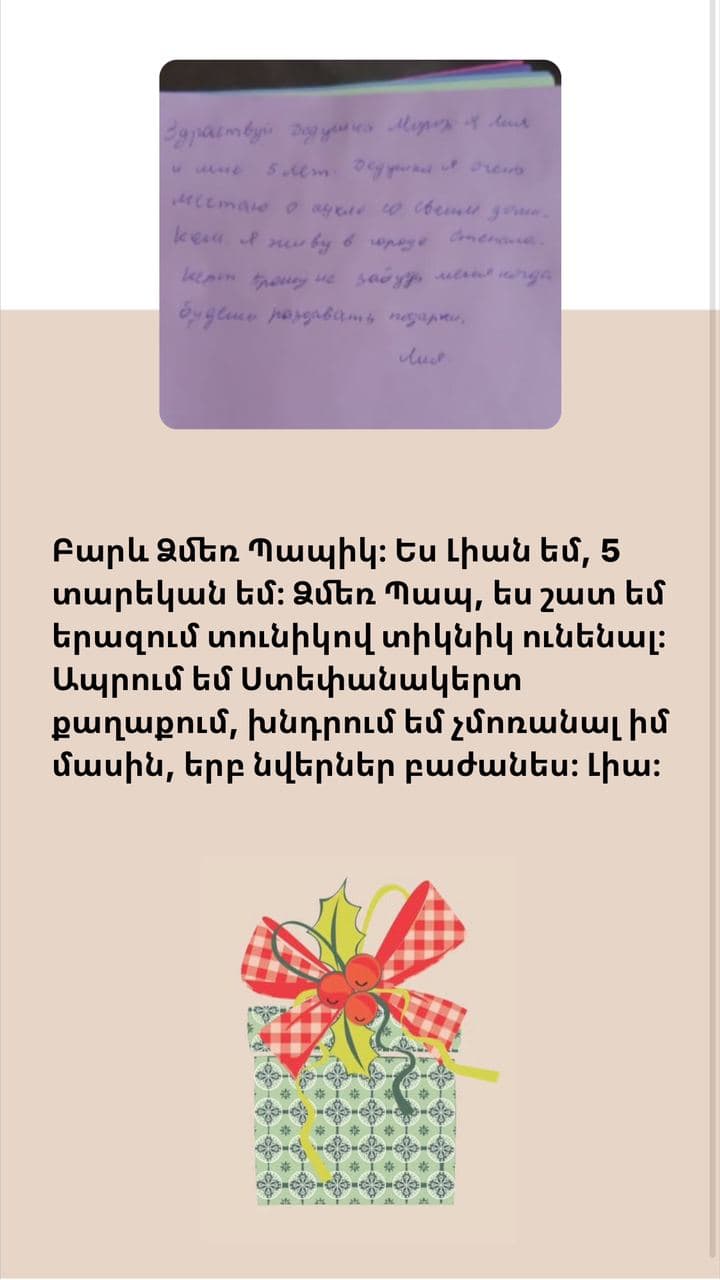 Здраствуй Дедушка Мороз я Лия
и мне 5 лет. Дедушка я очень
мечтаю о кукле со своим доми-
ком. Я живу в городе Степана-
керт прошу не забудь меня когда
будешь раздавать подарки.
Лия.
Բարև Ձմեռ Պապիկ: Ես Լիան եմ, 5
տարեկան եմ: Ձմեռ Պապ, ես շատ եմ
երազում տունիկով տիկնիկ ունենալ:
Ապրում եմ Ստեփանակերտ
քաղաքում, խնդրում եմ չմոռանալ իմ
մասին, երբ նվերներ բաժանես: Լիա: